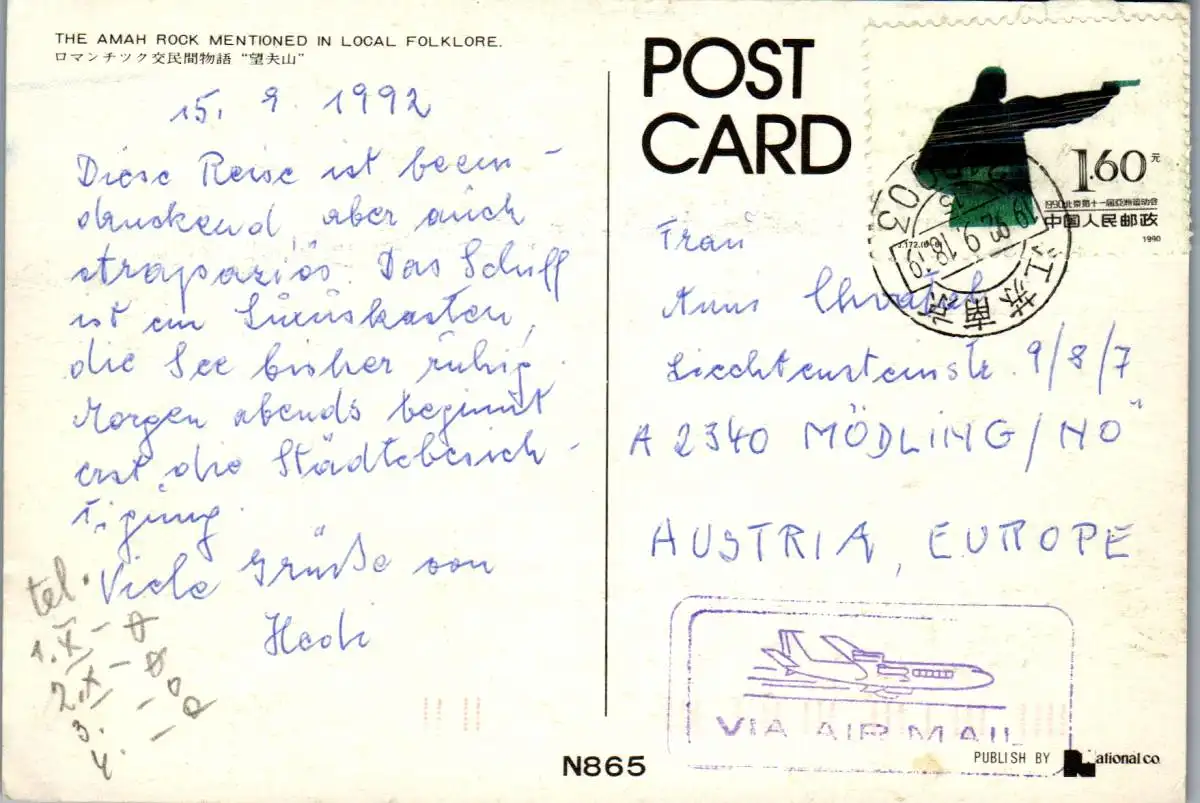 THE AMAH ROCK MENTIONED IN LOCAL FOLKLORE.
ロマンチツク交民間物語 “望夫山”
15. 9. 1992
Diese Reise ist beein-
druckend, aber auch
strapaziös. Das Schiff
ist ein Luxuskasten,
die See bisher ruhig.
Morgen abends beginnt
erst die Städtebesich-
tigung.
Viele Grüße von
Hedi
tel.
1. X -
2. X -
3. -
4. -
POST
CARD
1.60元
1990北京第十一届亞洲运动会
中国人民邮政
J.172.
1990
江苏南京
Frau
Anna
Liechtensteinstr. 9/8/7
A 2340 MÖDLING/NÖ
AUSTRIA, EUROPE
VIA AIR MAIL
PUBLISH BY National co.
N865